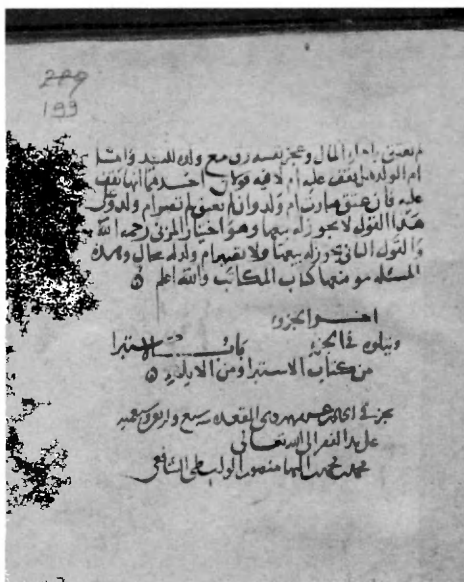 199
لم يعتق باداء المال وعجز نفسه رق مع ولده للسيد واما
ام الولد هل يقف عليه ام لا فيه قولان احدهما انها تقف
عليه فان عتق صارت ام ولد وان لم يعتق لم تصر ام ولد
هذا القول لا يجوز له بيعها وهو اختيار المزني رحمه الله
والقول الثاني يجوز له بيعها ولا تصير ام ولد له بحال وهذه
المسئله موضعها كتاب المكاتب والله اعلم
اخر الجزو
ويتلوه في الجزء باب الاستبرا
من كتاب الاستبرا ومن
نجز في شهر ذي القعده سبع واربعين
على يد الفقير الى الله تعالى
محمد بن منصور الشافعي